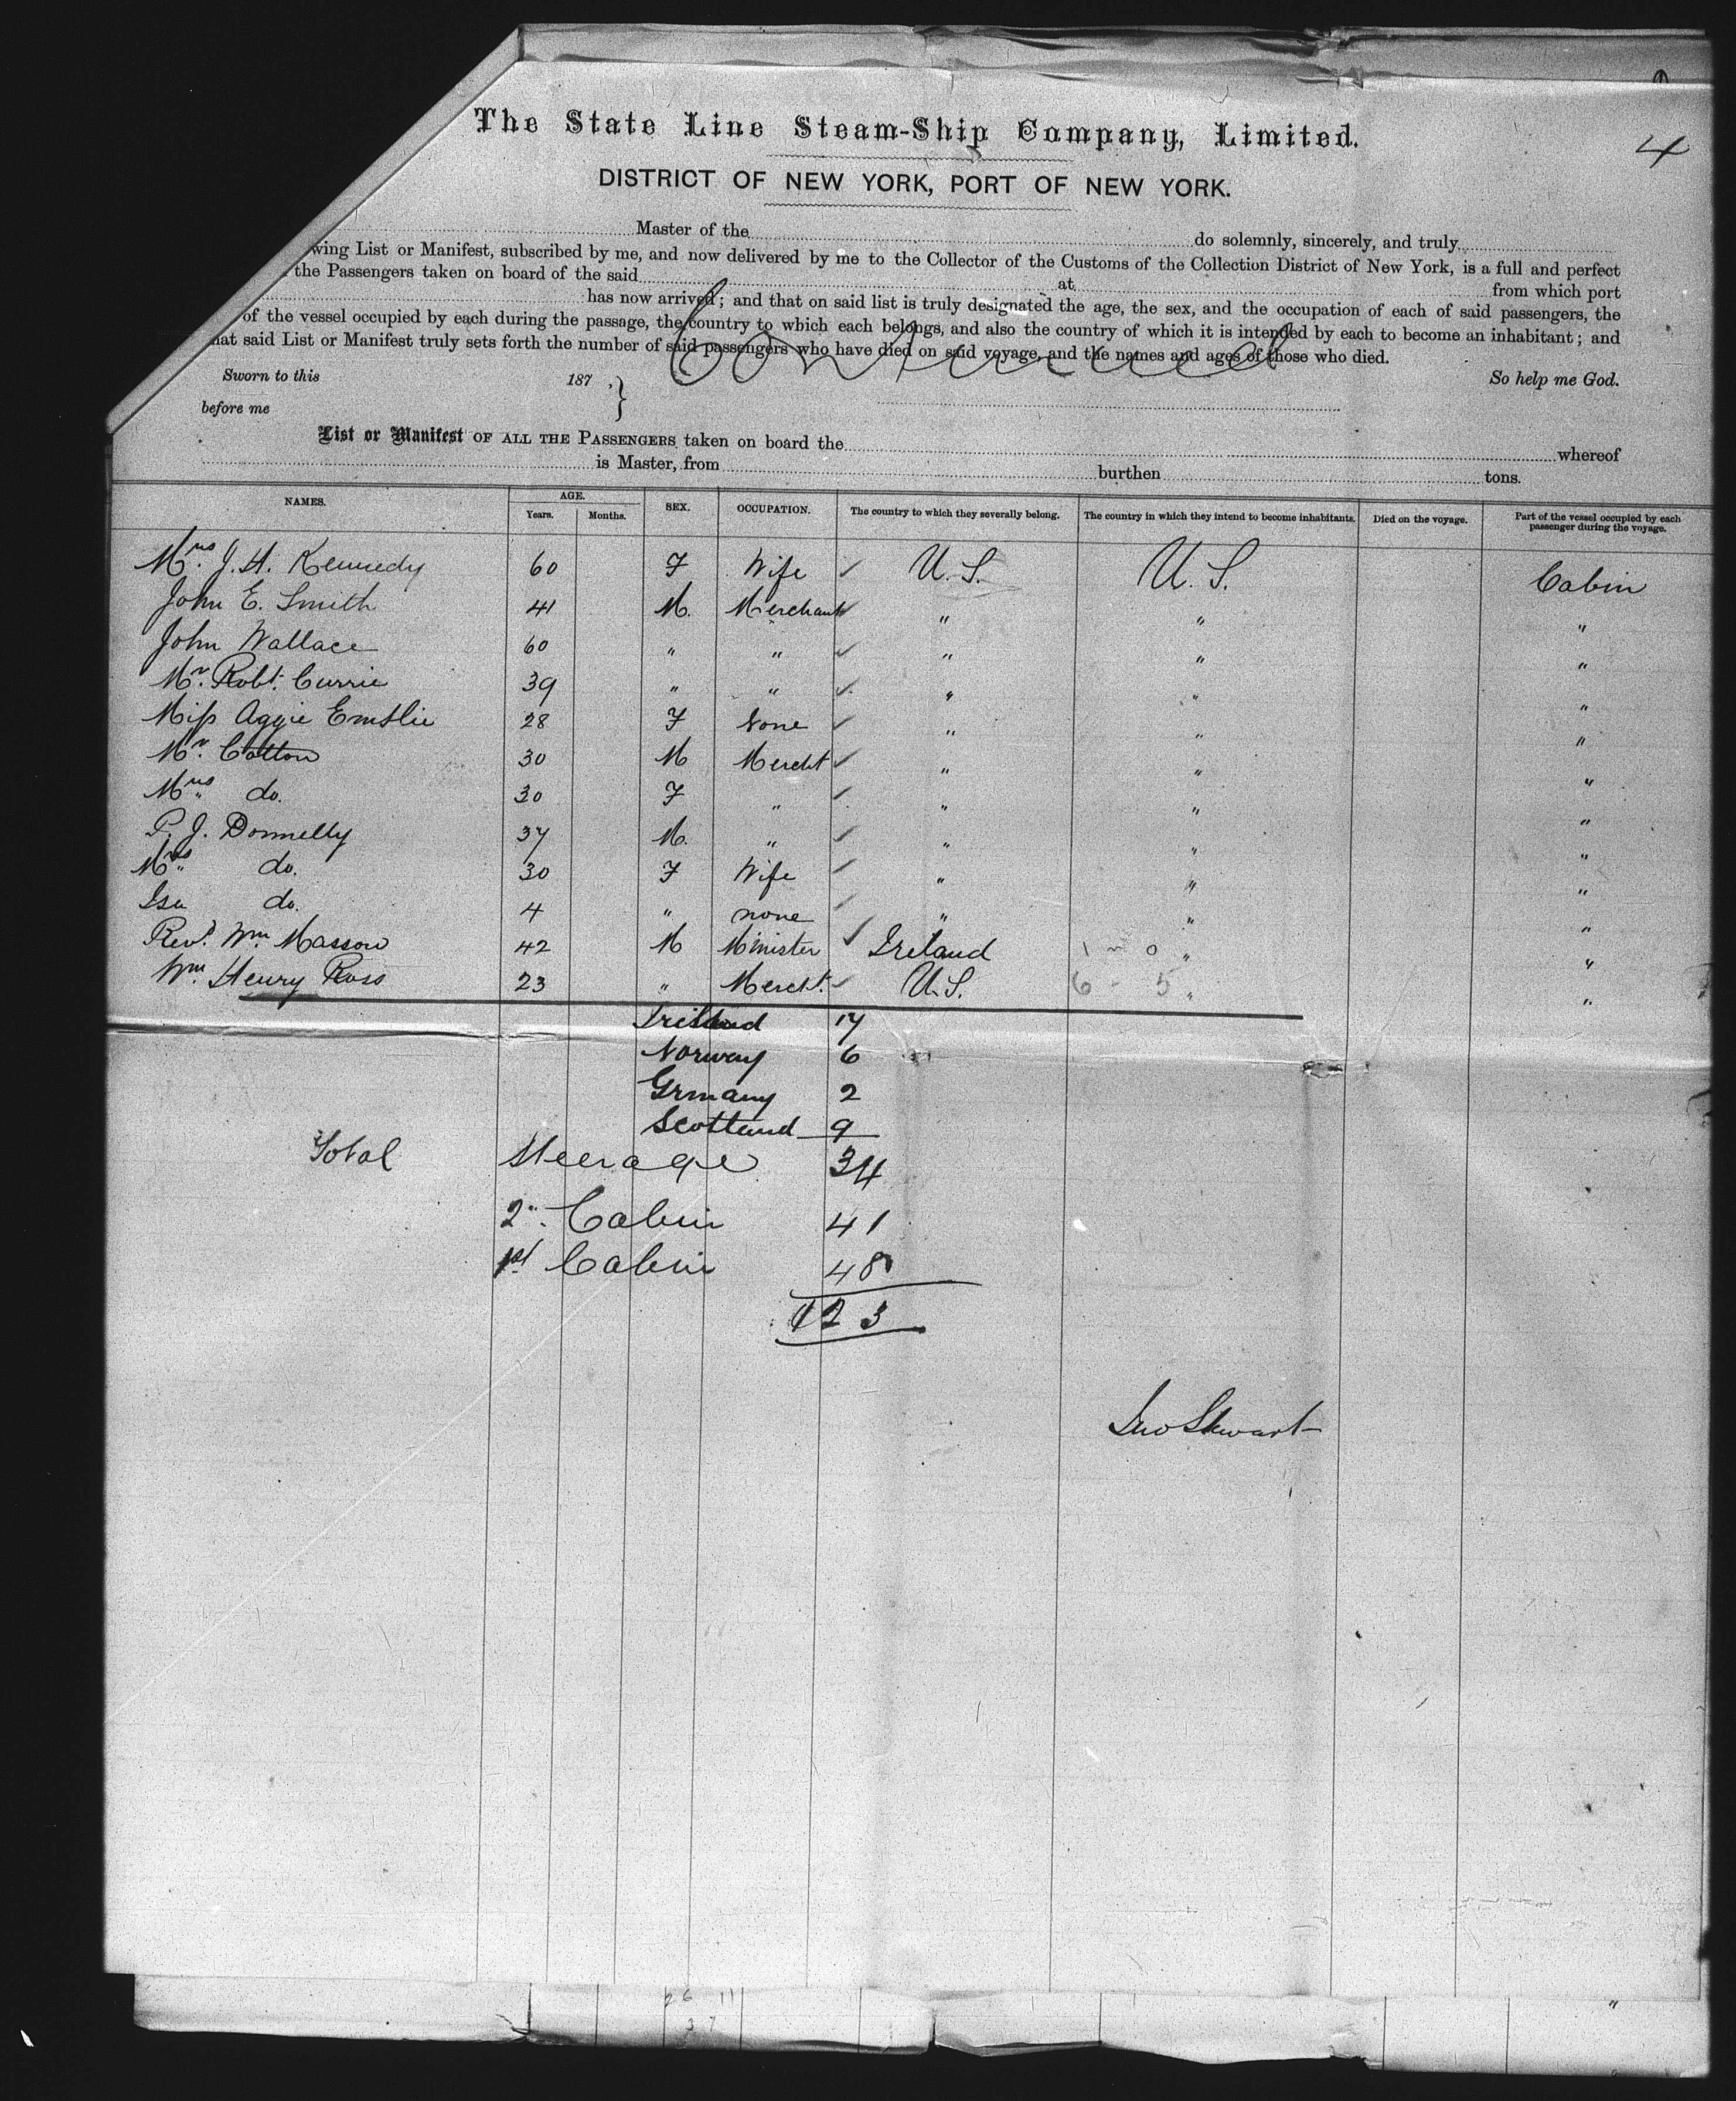 The State Line Steam-Ship Company, Limited.
4
DISTRICT OF NEW YORK, PORT OF NEW YORK.
Master of the do solemnly, sincerely, and truly
wing List or Manifest, subscribed by me, and now delivered by me to the Collector of the Customs of the Collection District of New York, is a full and perfect
the Passengers taken on board of the said at from which port
has now arrived; and that on said list is truly designated the age, the sex, and the occupation of each of said passengers, the
of the vessel occupied by each during the passage, the country to which each belongs, and also the country of which it is intended by each to become an inhabitant; and
hat said List or Manifest truly sets forth the number of said passengers who have died on said voyage, and the names and ages of those who died.
Continued
Sworn to this 187 , } So help me God.
before me
List or Manifest OF ALL THE PASSENGERS taken on board the whereof
is Master, from burthen tons.
NAMES. AGE. SEX. OCCUPATION. The country to which they severally belong. The country in which they intend to become inhabitants. Died on the voyage. Part of the vessel occupied by each passenger during the voyage.
Years. Months.
Mrs. J. H. Kennedy 60 F Wife ✓ U.S. U.S. Cabin
John E. Smith 41 M. Merchant ✓ " " "
John Wallace 60 " " ✓ " " "
Mr. Robt. Currie 39 " " ✓ " " "
Miss Aggie Emslie 28 F None ✓ " " "
Mr. Cotton 30 M Mercht ✓ " " "
Mrs. do. 30 F " ✓ " " "
P. J. Donnelly 37 M. " ✓ " " "
Mrs. do. 30 F Wife ✓ " " "
Isa do. 4 " none ✓ " " "
Revd. Wm. Masson 42 M Minister ✓ Ireland 1 - 0 " "
Wm. Henry Ross 23 " Mercht. ✓ U.S. 6 - 5 " "
Ireland 17
Norway 6
Grmany 2
Scotland 9
Total Steerage 34
2". Cabin 41
1st Cabin 48
123
Jno Stewart
26 11
37
"